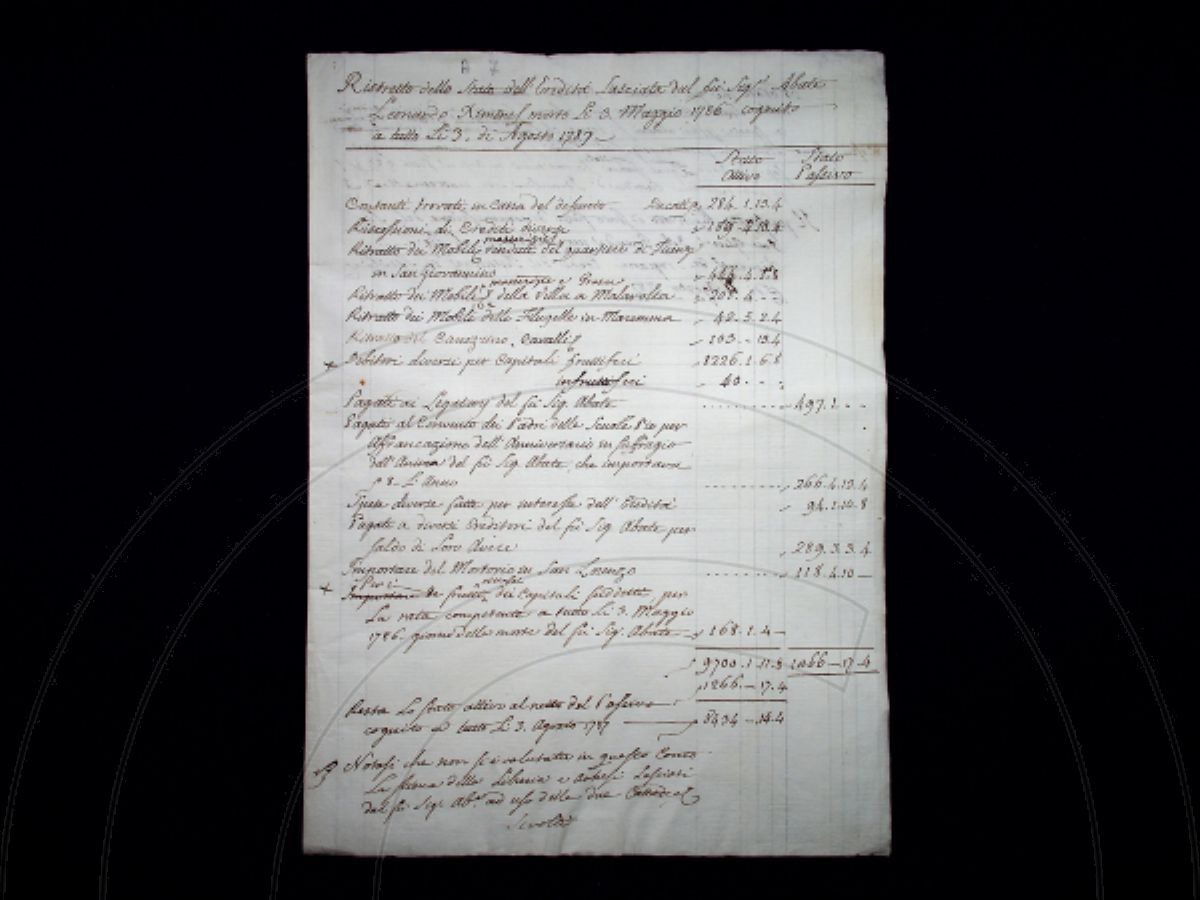 A 7
Ristretto dello Stato dell'Eredità Lasciata dal fù Sigr. Abate
Leonardo Ximenes morto li 3. Maggio 1786 cognito
a tutto li 3. di Agosto 1787.
Stato Attivo
Stato Passivo
Contanti trovati in Cassa del defunto Ducati 284.1.13.4
Riscossioni di Crediti diversi
Ritratto dei Mobili, masserizie vendute del quartiere di
in San Giovannino
Ritratto dei Mobili masserizie e della Villa a Malavolta 208.4.-.-
Ritratto dei Mobili delle in Maremma 42.5.2.4
Ritratto del Cavalli 103.-.13.4
+ Debitori diversi per Capitali fruttiferi 8226.1.6.8
infruttiferi 40.-.-
Pagati ai Legatarj del fù Sig. Abate 497.1.-.-
Pagati al Convento dei Padri delle Scuole Pie per
Affrancazione dell'Anniversario in suffragio
dell'Anima del fù Sig. Abate, che importava
8. L'Anno 266.4.13.4
Spese diverse fatte per interesse dell'Eredità 94.1.10.8
Pagati a diversi Creditori del fù Sig. Abate per
saldo di Loro Avere 289.3.3.4
Importare del Mortorio in San Lorenzo 118.4.10.-
+ Per i frutti dei Capitali suddetti, per
La rata competente a tutto li 3. Maggio
1786. giorno della morte del fù Sig. Abate 168.1.4.-
9700.1.11.8 1266.-.17.4
1266.-.17.4
Resta Lo Stato attivo al netto del Passivo
cognito a tutto li 3. Agosto 1787 8434.-.14.4
Notasi che non si è valutata in questo Conto
La stima della Libreria e Lasciati
dal fù Sigr. Abe. ad uso delle due